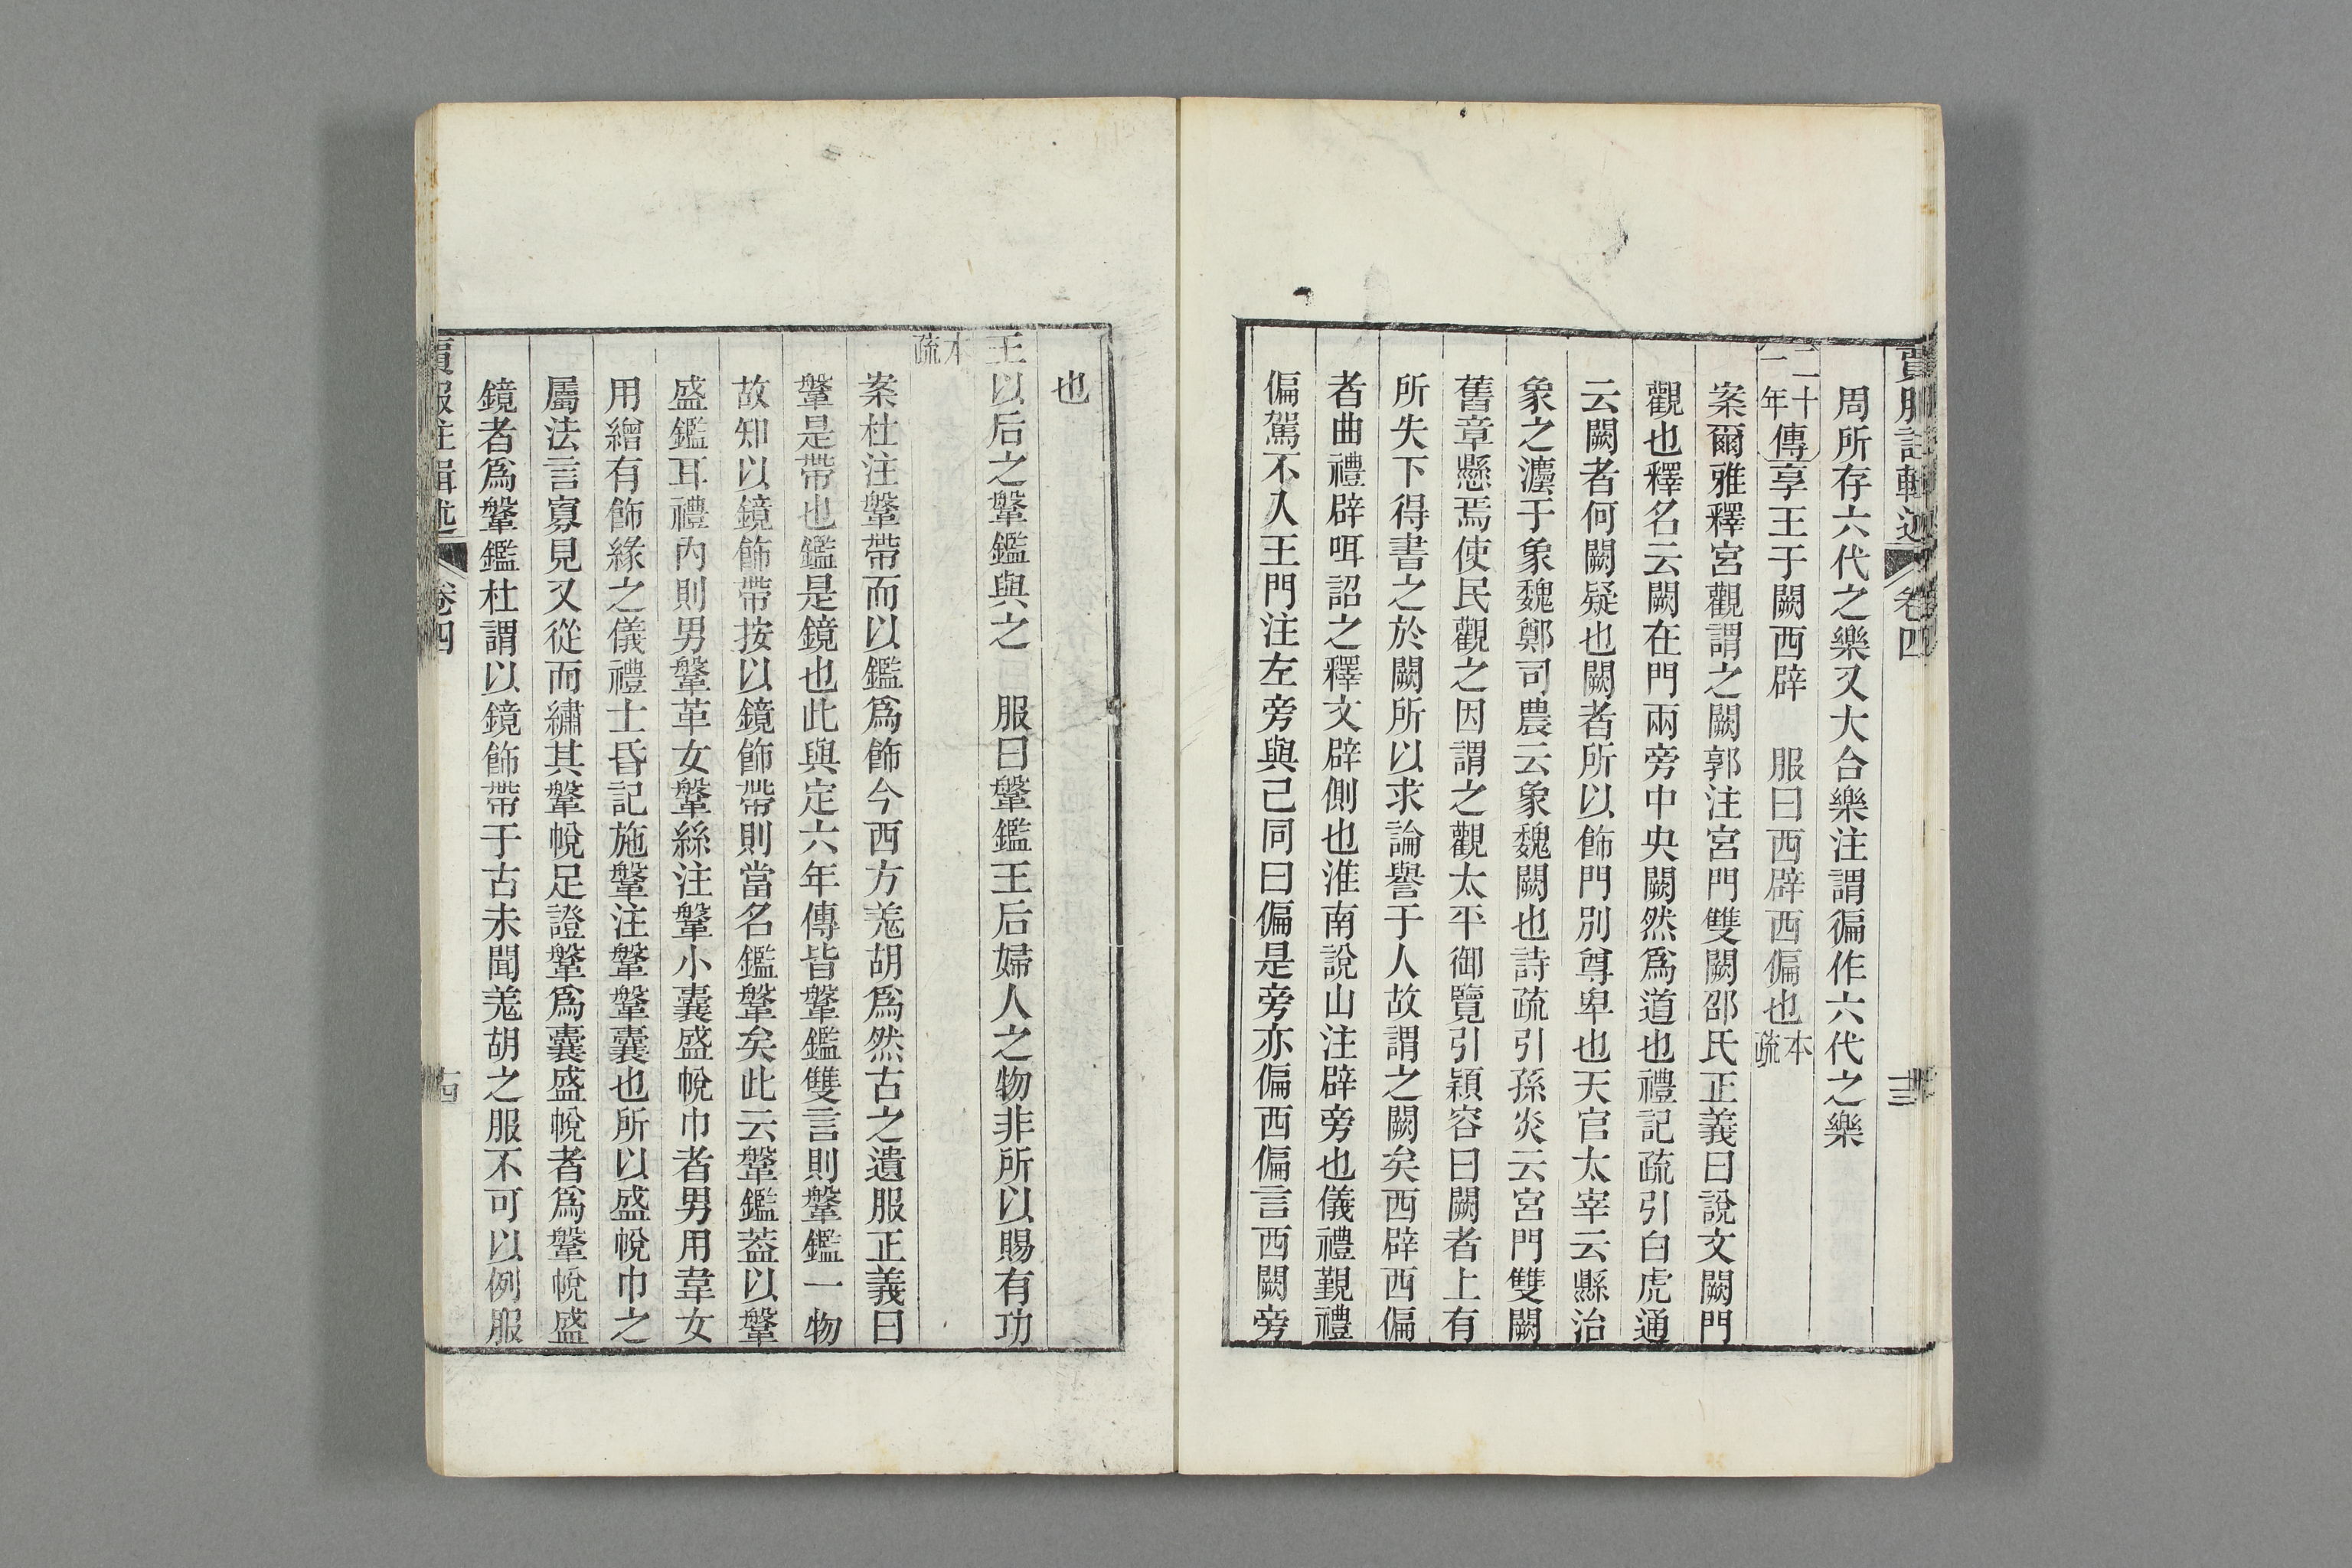 賈服註輯述 卷四 十三
周所存六代之樂又大合樂注謂徧作六代之樂
二十一年傳享王于闕西辟 服曰西辟西偏也本疏
案爾雅釋宮觀謂之闕郭注宮門雙闕邵氏正義曰說文闕門
觀也釋名云闕在門兩旁中央闕然爲道也禮記疏引白虎通
云闕者何闕疑也闕者所以飾門別尊卑也天官太宰云縣治
象之灋于象魏鄭司農云象魏闕也詩疏引孫炎云宮門雙闕
舊章懸焉使民觀之因謂之觀太平御覽引穎容曰闕者上有
所失下得書之於闕所以求論譽于人故謂之闕矣西辟西偏
者曲禮辟咡詔之釋文辟側也淮南說山注辟旁也儀禮覲禮
偏駕不入王門注左旁與己同曰偏是旁亦偏西偏言西闕旁
也
王以后之鞶鑑與之 服曰鞶鑑王后婦人之物非所以賜有功
本疏
案杜注鞶帶而以鑑爲飾今西方羌胡爲然古之遺服正義曰
鞶是帶也鑑是鏡也此與定六年傳皆鞶鑑雙言則鞶鑑一物
故知以鏡飾帶按以鏡飾帶則當名鑑鞶矣此云鞶鑑葢以鞶
盛鑑耳禮內則男鞶革女鞶絲注鞶小囊盛帨巾者男用韋女
用繒有飾緣之儀禮士昏記施鞶注鞶鞶囊也所以盛帨巾之
屬法言寡見又從而繡其鞶帨足證鞶爲囊盛帨者爲鞶帨盛
鏡者爲鞶鑑杜謂以鏡飾帶于古未聞羌胡之服不可以例服
賈服註輯述 卷四 十四